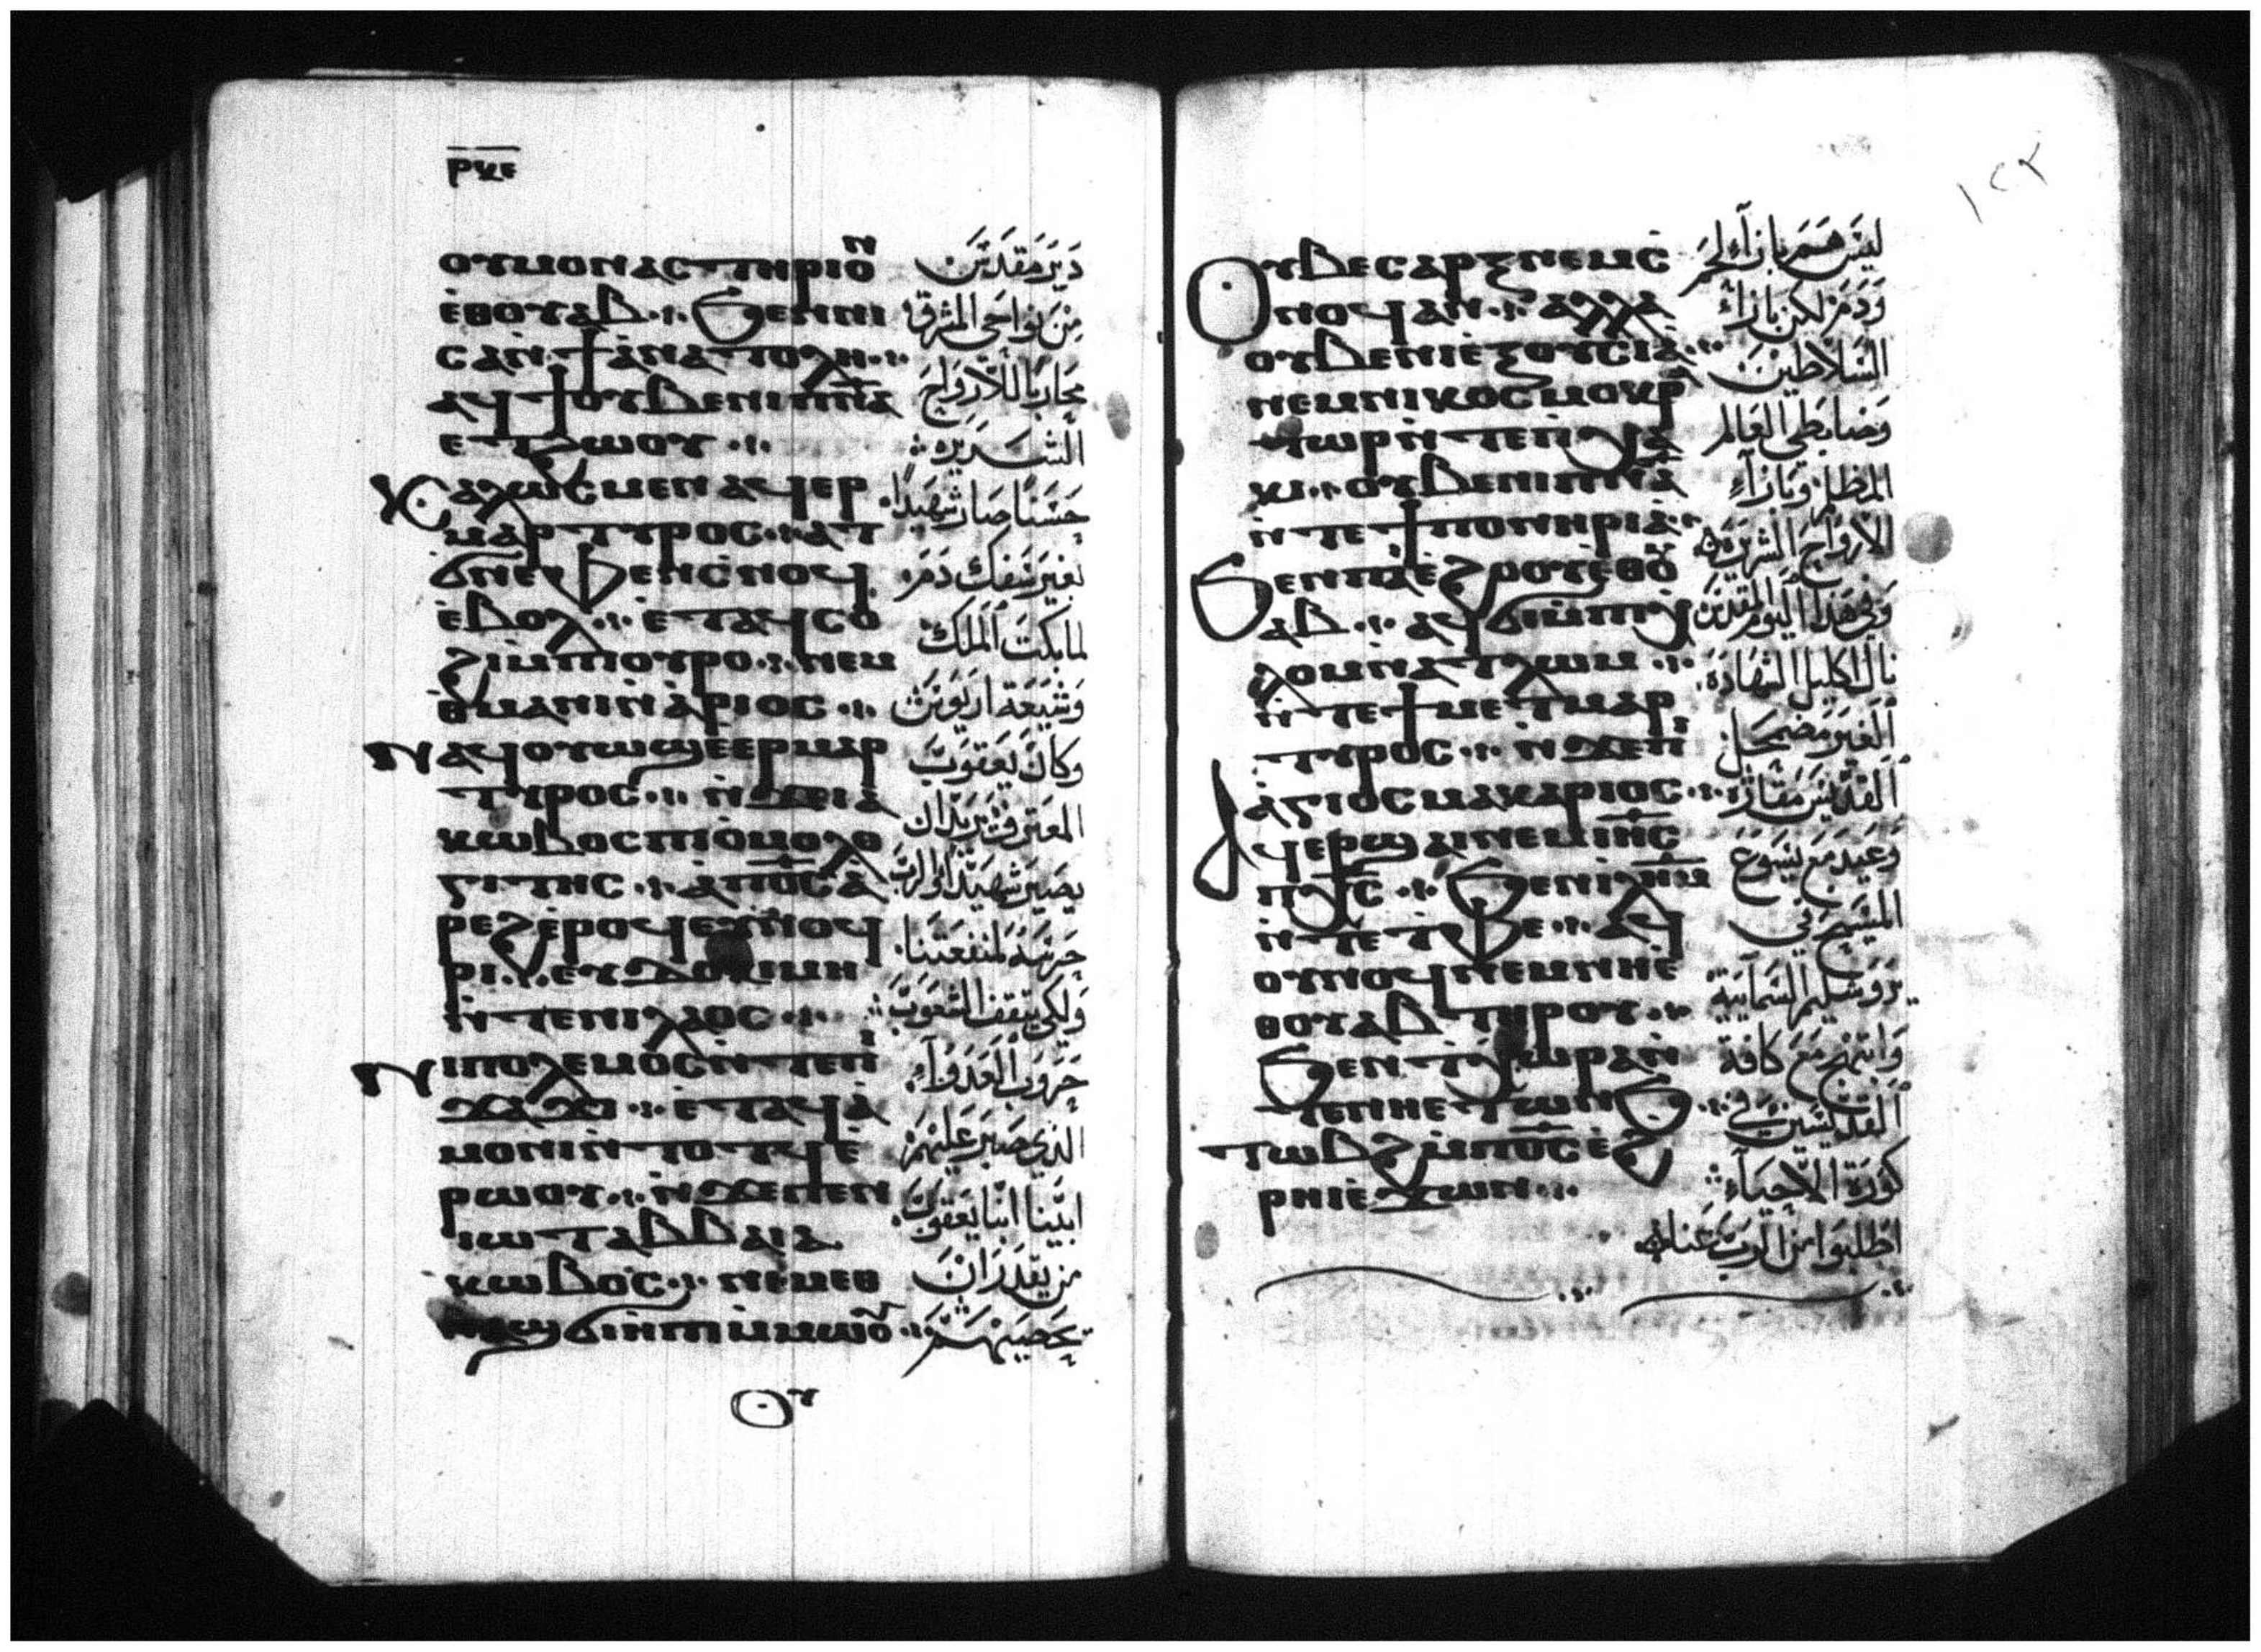 ⲣⲕⲉ
ⲟⲩⲙⲟⲛⲁⲥⲧⲏⲣⲓⲟ̅ⲛ
ⲉ̀ⲑⲟⲩⲁⲃ ⳾ ϧⲉⲛⲛⲓ
ⲥⲁⲛ̀ϯⲁ̀ⲛⲁⲧⲟⲗⲏ ⳾
ⲁϥϯⲟⲩⲃⲉⲛⲓⲡ̅ⲛ̅ⲁ̅
ⲉⲧϩⲱⲟⲩ ⳾
Ⲕⲁⲗⲱⲥⲙⲉⲛⲁϥⲉⲣ
ⲙⲁⲣⲧⲩⲣⲟⲥ ⳾ ⲁⲧ
ϭⲛⲉⲫⲉⲛⲥ̀ⲛⲟϥ
ⲉ̀ⲃⲟⲗ ⳾ ⲉ̀ⲧⲁϥⲥⲟ
ϩⲓⲙ̀ⲡⲟⲩⲣⲟ ⳾ ⲛⲉⲙ
ⲑⲙⲁⲛⲓⲛ̀ⲁ̀ⲣⲓⲟⲥ ⳾
Ⲛⲁϥⲟⲩⲱϣⲉⲉⲣⲙⲁⲣ
ⲧⲩⲣⲟⲥ ⳾ ⲛ̀ϫⲉⲓⲁ̀
ⲕⲱⲃⲟⲥⲡⲓⲟ̀ⲙⲟⲗⲟ
ⲅⲓⲧⲏⲥ ⳾ ⲁ̀ⲡ̅ⲟ̅ⲥ̅ⲁ̀
ⲣⲉϩⲉ̀ⲣⲟϥⲉⲑⲛⲟϥ
ⲣⲓ ⳾ ⲉⲩⲇⲟⲕⲓⲙⲏ
ⲛ̀ⲧⲉⲛⲓⲗⲁⲟⲥ ⳾
Ⲛⲓⲡⲟⲗⲉⲙⲟⲥⲛ̀ⲧⲉⲡⲓ
ϫⲁϫⲓ ⳾ ⲉ̀ⲧⲁϥⲁ̀
ⲙⲟⲛⲓⲛ̀ⲧⲟⲧϥⲉ̀
ⲣⲱⲟⲩ ⳾ ⲛ̀ϫⲉⲡⲉⲛ
ⲓⲱⲧⲁⲃⲃⲁⲓⲁ
ⲕⲱⲃⲟⲥ ⳾ ⲛⲓⲙⲉⲑ
ⲛⲁϣϭⲓⲏ̀ⲡⲓⲙ̀ⲙⲱⲟ̅ⲩ ⳾
Ⲟⲩ
دير مقدس
من نواحي المشرق
محاربا للارواح
الشريره
حسنا صار شهيدا
بغير سفك دم
لما بكت الملك
وشيعة اريوس
وكان يعقوب
المعترف يريد ان
يصير شهيدا والرب
حرسه لمنفعتنا
ولكي يثقف الشعوب
حروب العدو
الذي صبر عليهم
ابينا انبا يعقوب
من يقدر ان
يحصيهم
١٢٢
Ⲟⲩⲃⲉⲥⲁⲣⲝⲛⲉⲙⲥ̀
ⲛⲟϥⲁⲛ ⳾ ⲁⲗⲗⲁ
ⲟⲩⲃⲉⲛⲓⲉ̀ⲝⲟⲩⲥⲓⲁ̀ ⳾
ⲛⲉⲙⲛⲓⲕⲟⲥⲙⲟⲕⲣⲁ
ⲧⲱⲣⲛ̀ⲧⲉⲡⲓⲭⲁ
ⲕⲓ ⳾ ⲟⲩⲃⲉⲛⲓⲡ̅ⲛ̅ⲁ̅
ⲛ̀ⲧⲉϯⲡⲟⲛⲏⲣⲓⲁ̀
Ϧⲉⲛⲡⲁⲓⲉ̀ϩⲟⲟⲩⲉ̀ⲑⲟⲩ
ⲁⲃ ⳾ ⲁϥϭⲓⲙ̀ⲡⲓⲭ
ⲗⲟⲙⲛ̀ⲁⲧⲗⲱⲙ ⳾
ⲛ̀ⲧⲉϯⲙⲉⲧⲙⲁⲣ
ⲧⲩⲣⲟⲥ ⳾ ⲛ̀ϫⲉⲡⲓ
ⲁ̀ⲅⲓⲟⲥⲙⲁⲕⲁⲣⲓⲟⲥ ⳾
Ⲁϥⲉⲣϣⲁⲓⲛⲉⲙⲓ̅ⲏ̅ⲥ̅
ⲡ̅ⲭ̅ⲥ̅ ⳾ ϧⲉⲛⲓ̅ⲗ̅ⲏ̅ⲙ̅
ⲛ̀ⲧⲉⲧⲫⲉ ⳾ ⲁϥ
ⲟⲩⲛⲟϥⲛⲉⲙⲛⲏⲉ̀
ⲑⲟⲩⲁⲃ ⲧⲏⲣⲟⲩ ⳾
ϧⲉⲛⲧⲭⲱⲣⲁⲛ̀
ⲧⲉⲛⲏⲉⲧⲱⲛϧ ⳾
ⲧⲱⲃϩⲙ̀ⲡ̅ⲟ̅ⲥ̅ⲉ̀ϩ
ⲣⲏⲓⲉ̀ϫⲱⲛ ⳾
ليس هم بازاء لحم
ودم لكن بازاء
السلاطين
وضابطي العالم
المظلم وبازاء
الارواح الشريرة
وفي هذا اليوم المقدس
نال اكليل الشهادة
الغير مضمحل
القديس مقار
وعيد مع يسوع
المسيح في
يروشليم السمايية
وابتهج مع كافة
القديسين في
كورة الاحياء
اطلبوا من الرب عنا